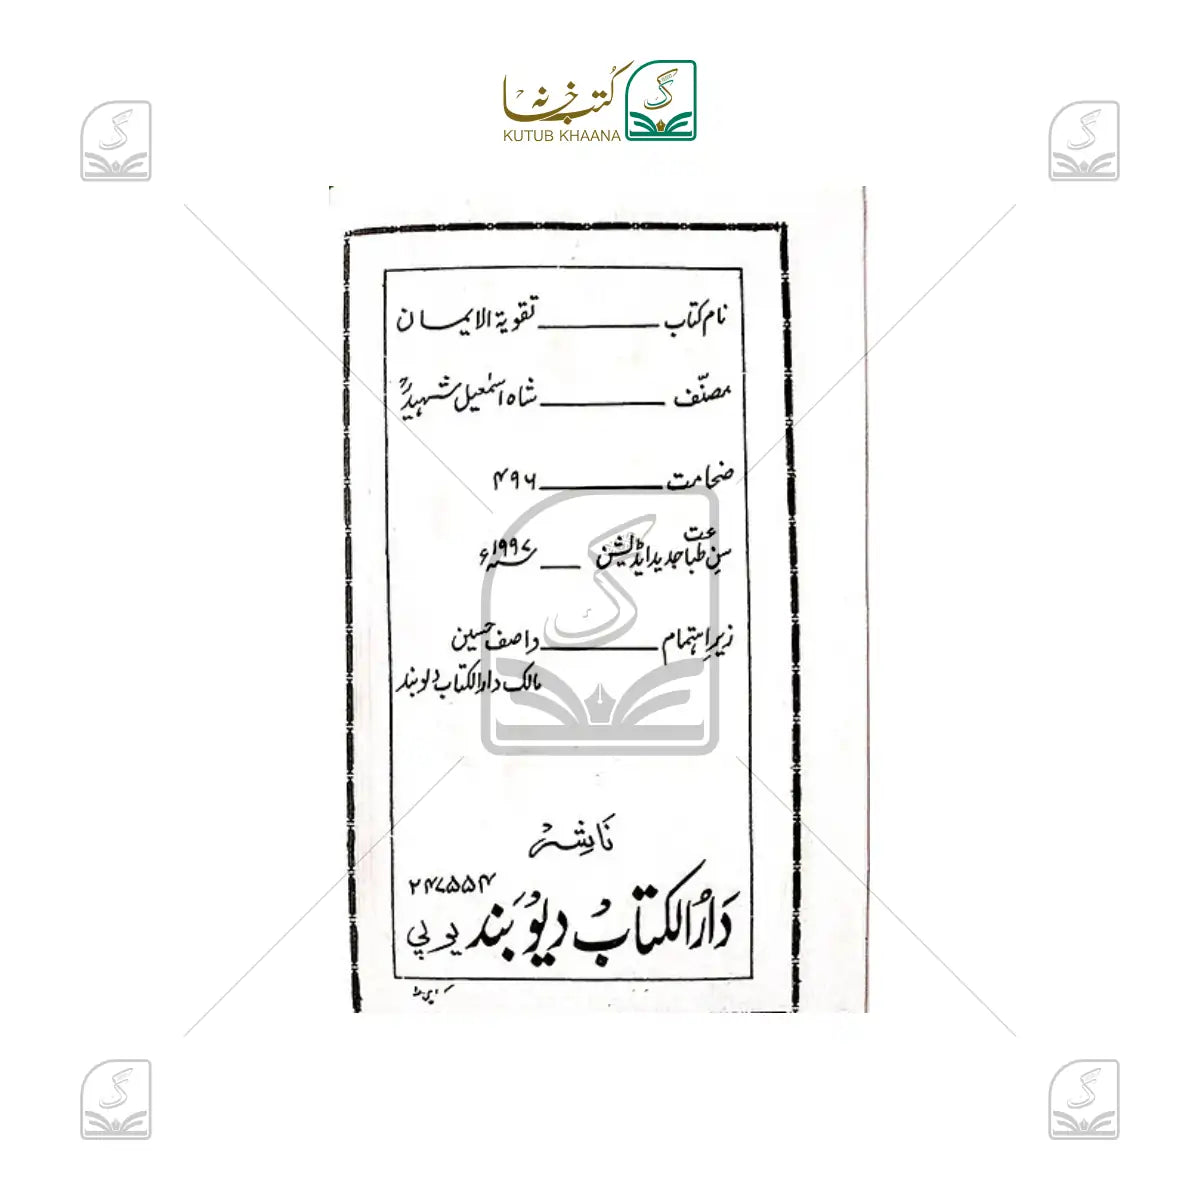 کتب خانہ
KUTUB KHAANA
نام کتاب ـــــــــ تقویۃ الایمان
مصنّف ـــــــــ شاہ اسمٰعیل شہیدؒ
ضخامت ـــــــــ ۴۹۶
سنِ طباعت جدید ایڈیشن ـــ ۱۹۹۷ء
زیرِ اہتمام ـــــــــ واصف حسین
مالک دارالکتاب دیوبند
نَاشِر
۲۴۷۵۵۴
دَارُالکتابْ دیوبَند یوپی